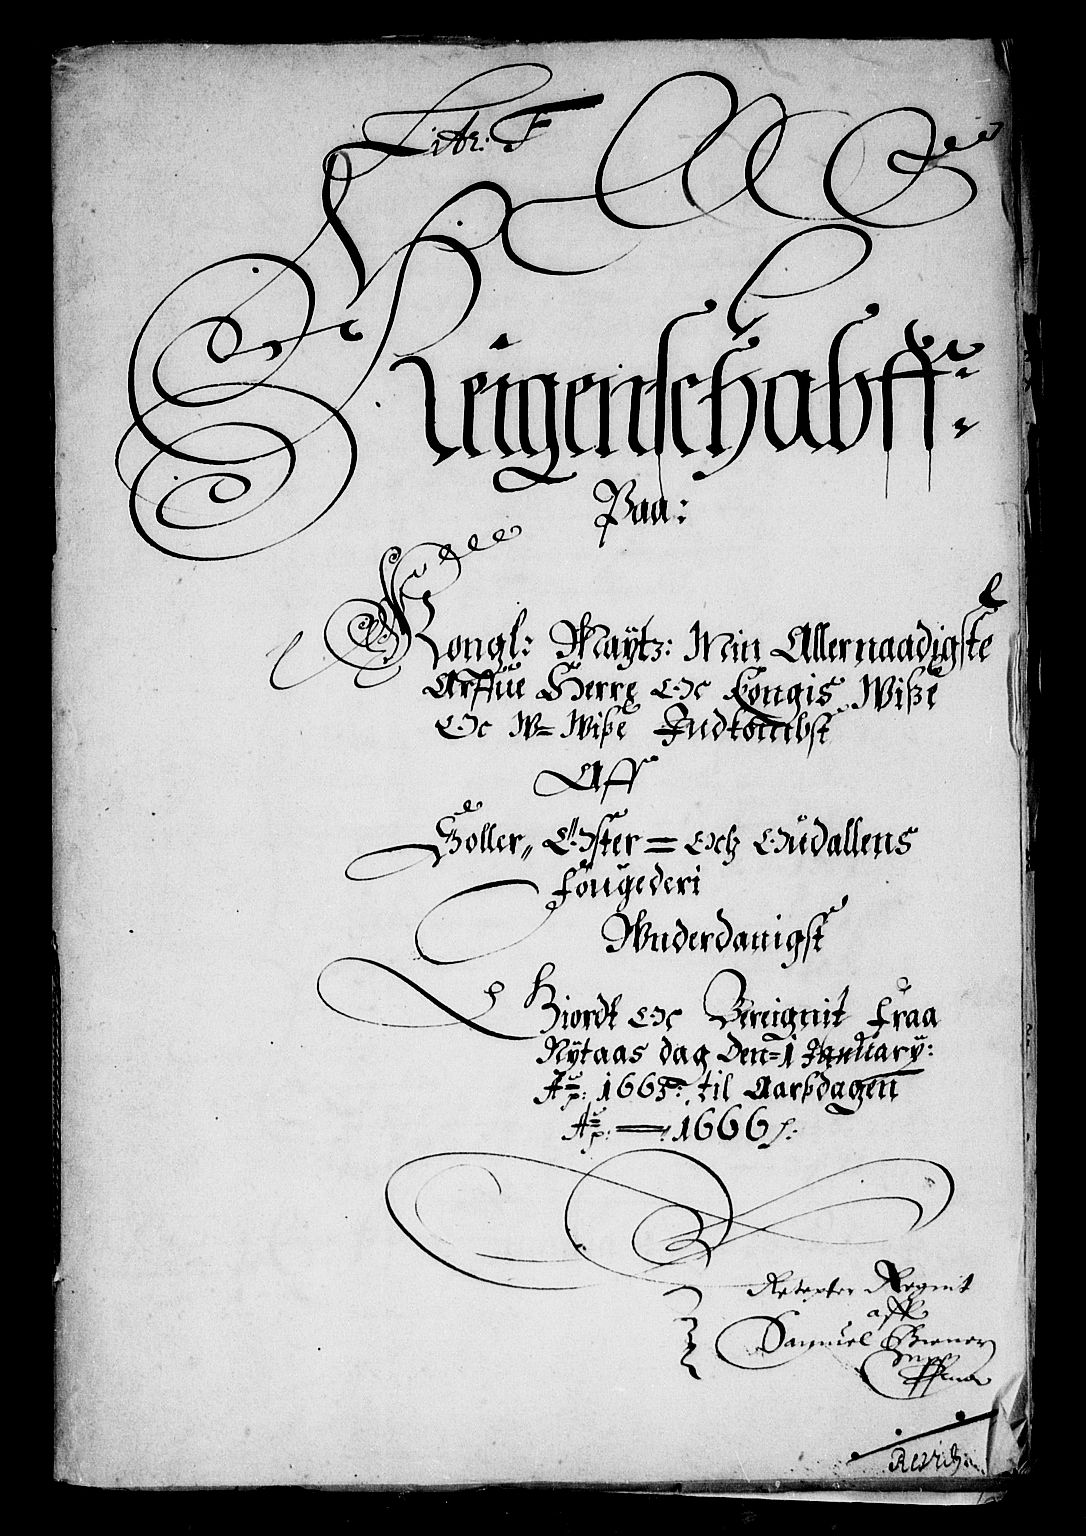 Litr: F
Reigenschabff:
Paa:
Kongl: Maytz: Min Allernaadigste
Arffue Herre Oc Kongis Wiße
Oc W= Wiße Indkombst
Aff
Soller,, Öster= Och Oudallens
fougederi
Wnderdanigst
Giordt Oc Bereignit fraa
Nytaas dag Den=1 January:
Ao: 1665: til Aarßdagen
Ao: 1666
Regnit
aff
Samuel